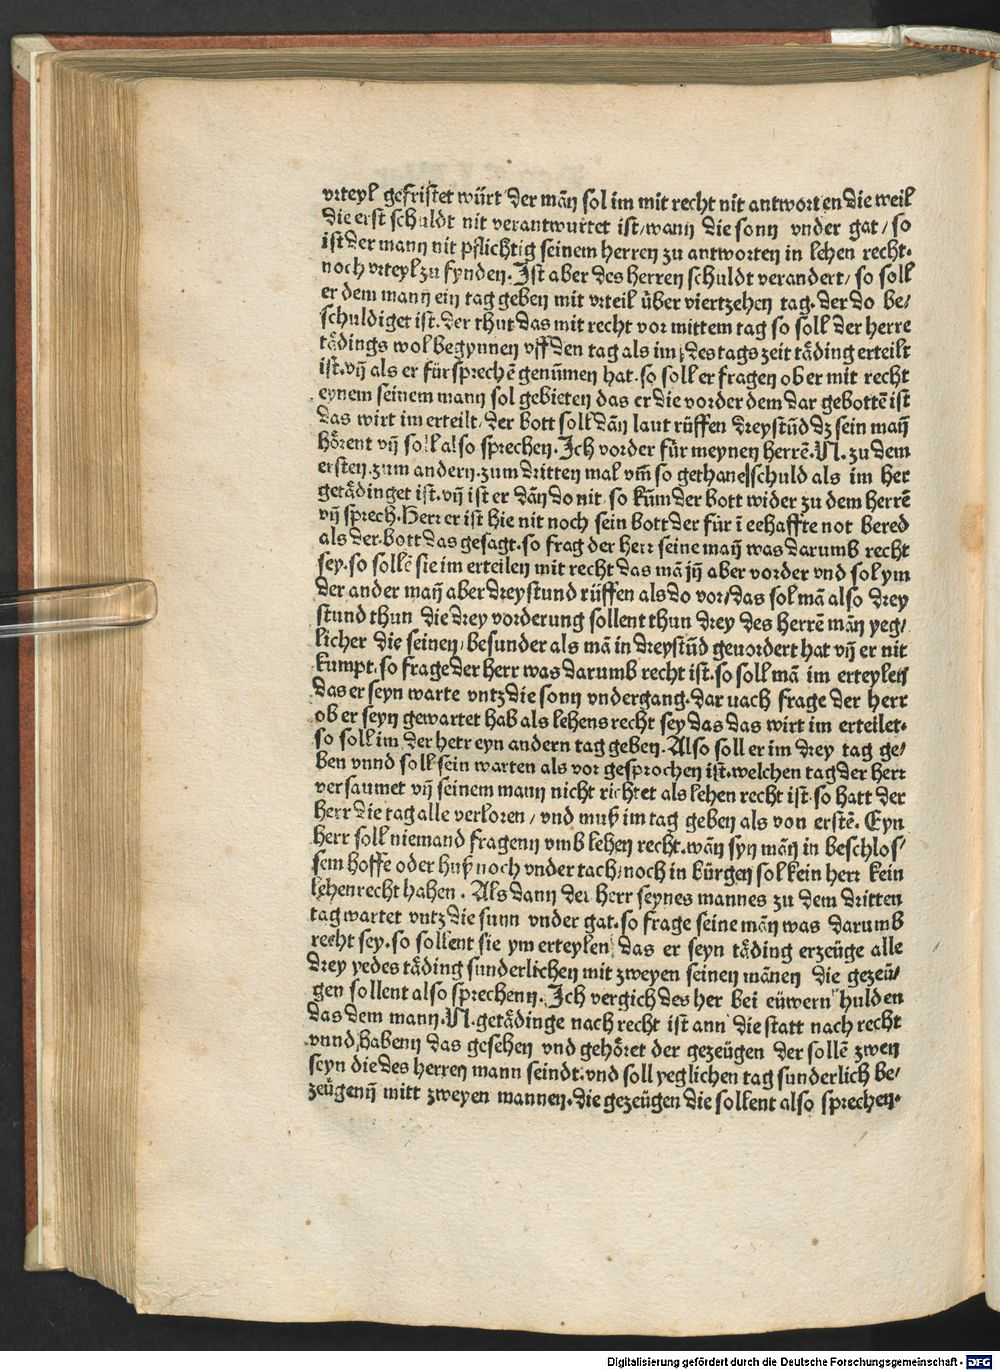 vrteyl gefristet würt der mãn sol im mit recht nit antworten die weil
die erst schuldt nit verantwurtet ist/wann die sonn vnder gat/so
ist der mann nit pflichtig seinem herren zu antworten in lehen recht.
noch vrteyl zu fynden. Ist aber des herren schuldt verandert/so soll
er dem mann ein tag geben mit vrteil über viertzehen tag. der do be/
schuldiget ist. der thut das mit recht vor mittem tag so soll der herre
tädings wol begynnen vff den tag als im des tags zeit täding erteilt
ist. vñ als er fürsprechẽ genũmen hat. so soll er fragen ob er mit recht
eynem seinem mann sol gebieten das er die vorder dem dar gebottẽ ist
das wirt im erteilt/der bott soll dãn laut rüffen dreystũd dz sein mañ
hörent vñ soll also sprechen. Ich vorder für meynen herrẽ. N. zu dem
ersten. zum andern. zum dritten mal vm̃ so gethane schuld als im her
getädinget ist. vñ ist er dãn do nit. so kũm der bott wider zu dem herrẽ
vñ sprech. Herr er ist hie nit noch sein bott der für ĩ eehaffte not bered
als der bott das gesagt. so frag der herr seine mañ was darumb recht
sey. so sollẽ sie im erteilen mit recht das mã jn aber vorder vnd sol ym
der ander mañ aber dreystund rüffen als do vor/das sol mã also drey
stund thun die drey vorderung sollent thun drey des herrẽ mãn yeg/
licher die seinen/besunder als mã in dreystũd geuordert hat vñ er nit
kumpt. so frage der herr was darumb recht ist. so soll mã im erteylen
das er seyn warte vntz die sonn vndergang. dar nach frage der herr
ob er seyn gewartet hab als lehens recht sey das das wirt im erteilet.
so soll im der herr eyn andern tag geben. Also soll er im drey tag ge/
ben vnnd soll sein warten als vor gesprochen ist. welchen tag der herr
versaumet vñ seinem mann nicht richtet als lehen recht ist. so hatt der
herr die tag alle verloren/vnd muß im tag geben als von erstẽ. Eyn
herr soll niemand fragenn vmb lehen recht. wãn syn mãn in beschlos/
sem hoffe oder huß noch vnder tach/noch in bürgen sol kein herr kein
lehenrecht haben. Als dann der herr seynes mannes zu dem dritten
tag wartet vntz die sunn vnder gat. so frage seine mãn was darumb
recht sey. so sollent sie ym erteylen das er seyn täding erzeüge alle
drey yedes täding sunderlichen mit zweyen seinen mãnen die gezeü/
gen sollent also sprechenn. Ich vergich des her bei eüwern hulden
das dem mann. N. getädinge nach recht ist ann die statt nach recht
vnnd habenn das gesehen vnd gehöret der gezeügen der sollẽ zwen
seyn die des herren mann seindt. vnd soll yeglichen tag sunderlich be/
zeügenn mitt zweyen mannen. die gezeügen die sollent also sprechen.
Digitalisierung gefördert durch die Deutsche Forschungsgemeinschaft - DFG